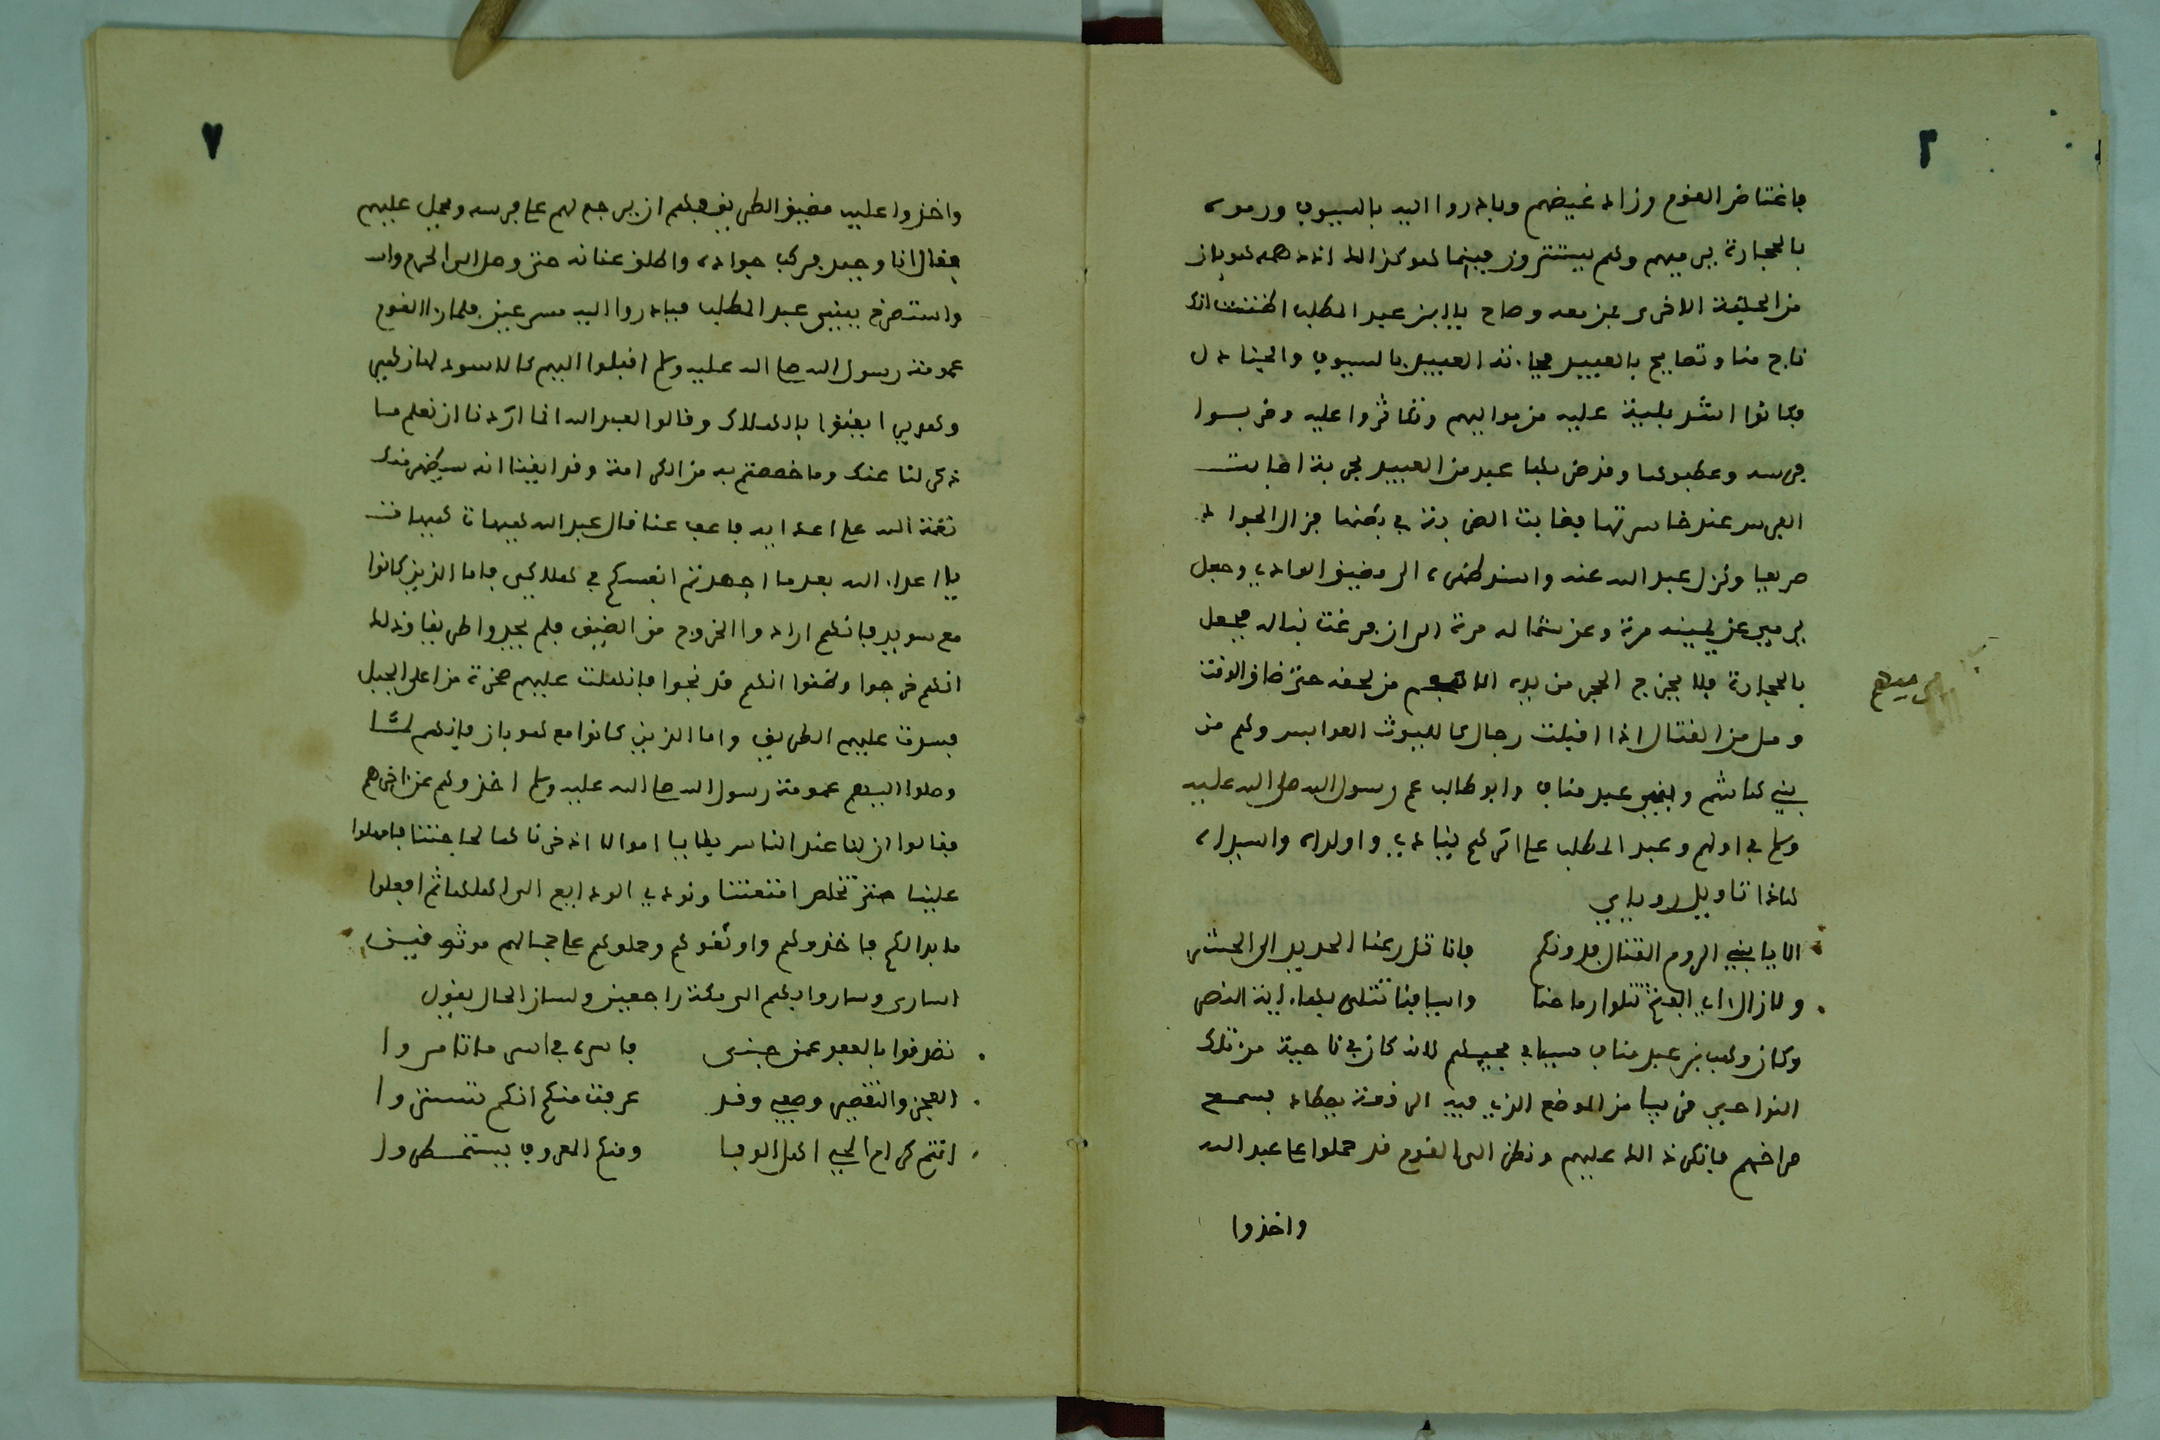 ٦
فاغتاض القوم وزاد غيضهم وبادروا اليه بالسيوف ورموه
بالحجارة يرميهم ولم يستترون فبينما هو كذلك اذ دهمه هوبان
من الحليفة الاخرى بمن معه وصاح يا ابن عبد المطلب اظننت انك
ناج منا وتصايح بالعبيد فجاءته العبيد بالسيوف والجنادل
فكانوا اشد بلية عليه من مواليهم وتكاثروا عليه وضربوا
فرسه وعطبوها وقد ضربها عبد من العبيد بحربة اصابت
الفرس عند خاسرتها فغابت الضربة في بطنها فنزل الجواد
صريعا ونزل عبد الله عنه واسند ظهره الى مضيق الوادي وجعل
يرمي عن يمينه مرة وعن شماله مرة الى ان فرغت نباله فجعل
يرميهم
بالحجارة فلا يخرج الحجر من يده الا من لحفه حتى ضاق الوقت
ومل من القتال اذا اقبلت رجال كالليوث العوابس وهم من
بني هاشم وبني عبد مناف وابو طالب عم رسول الله صلى الله عليه
وسلم في اولهم وعبد المطلب على اثرهم ينادي واولداه واسيداه
هاذا تاويل روياي
الا يا بني الروم القتال فدونكم فانا تدرعنا الحديد الى الحشر
ولا زال داب الفتح تتلوا رماحنا واسيافنا تتلى بها اية النصر
وكان وهب بن عبد مناف سببا في مجيئهم لانه كان في ناحية من تلك
النواحي قريبا من الموضع الذي فيه الى ذمة يصطاد فسمع
صراخهم فانكر ذالك عليهم ونظر الى القوم قد حملوا على عبد الله
واخذوا
٧
واخذوا عليه مضيق الطريق فهم ان يرجع لهم على فرسه ويحمل عليهم
فقال انا وحيد فركب جواده واطلق عنانه حتى وصل الى الحرم واد
واستصرخ ببني عبد المطلب فبادروا اليه مسرعين فلما راا القوم
عمومة رسول الله صلى الله عليه وسلم اقبلوا اليهم كالاسود لازهير
وهويي ايقنوا بالهلاك وقالوا لعبد الله انا اردنا ان نعلم ما
ذكر لنا عنك وما خصصتم به من الكرامة وقد ايقنا انه سيظهر منك
نقمة الله على اعدايه فاعف عنا قال عبد الله هيهات هيهات
يا اعداء الله بعد ما اجهدتم انفسكم في هلاكي فاما الذين كانوا
مع سويد فانهم ارادوا الخروج من الضيق فلم يجدوا طريقا وذلك
انهم خرجوا وظنوا انهم قد نجوا فانهلت عليهم صخرة من اعلى الجبل
فسدت عليهم الطريق واما الذين كانوا مع هوبان فانهم لما
وصلوا اليهم عمومة رسول الله صلى الله عليه وسلم اخذوهم عن اخرهم
فقالوا ان لنا عند الناس بقايا اموالا اذخرناها لحاجتنا فامهلوا
علينا حتى نتخلص امتعتنا ونودي الودايع الى اهلها ثم افعلوا
ما بدالكم فاخذوهم واوثقوهم وحملوهم على جمالهم موثوقين
اسارى وساروا بهم الى مكة راجعين ولسان الحال يقول
تصدقوا بالعفو عمن جنى فاسره في اسر ما تامروا
العجز والتقصير وصفي وقد عرفت منكم انكم تستروا
انتم كرام الحي اهل الوفا ومنكم المعروف يستمطروا